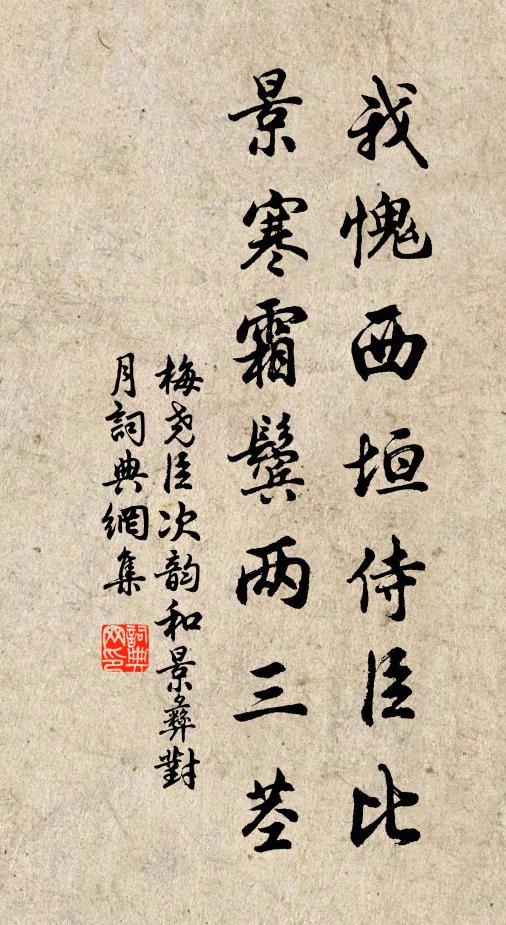 我愧西垣侍臣比
景寒霜鬓两三茎
梅尧臣次韵和景彝對
月詞典網集
詞典
网印